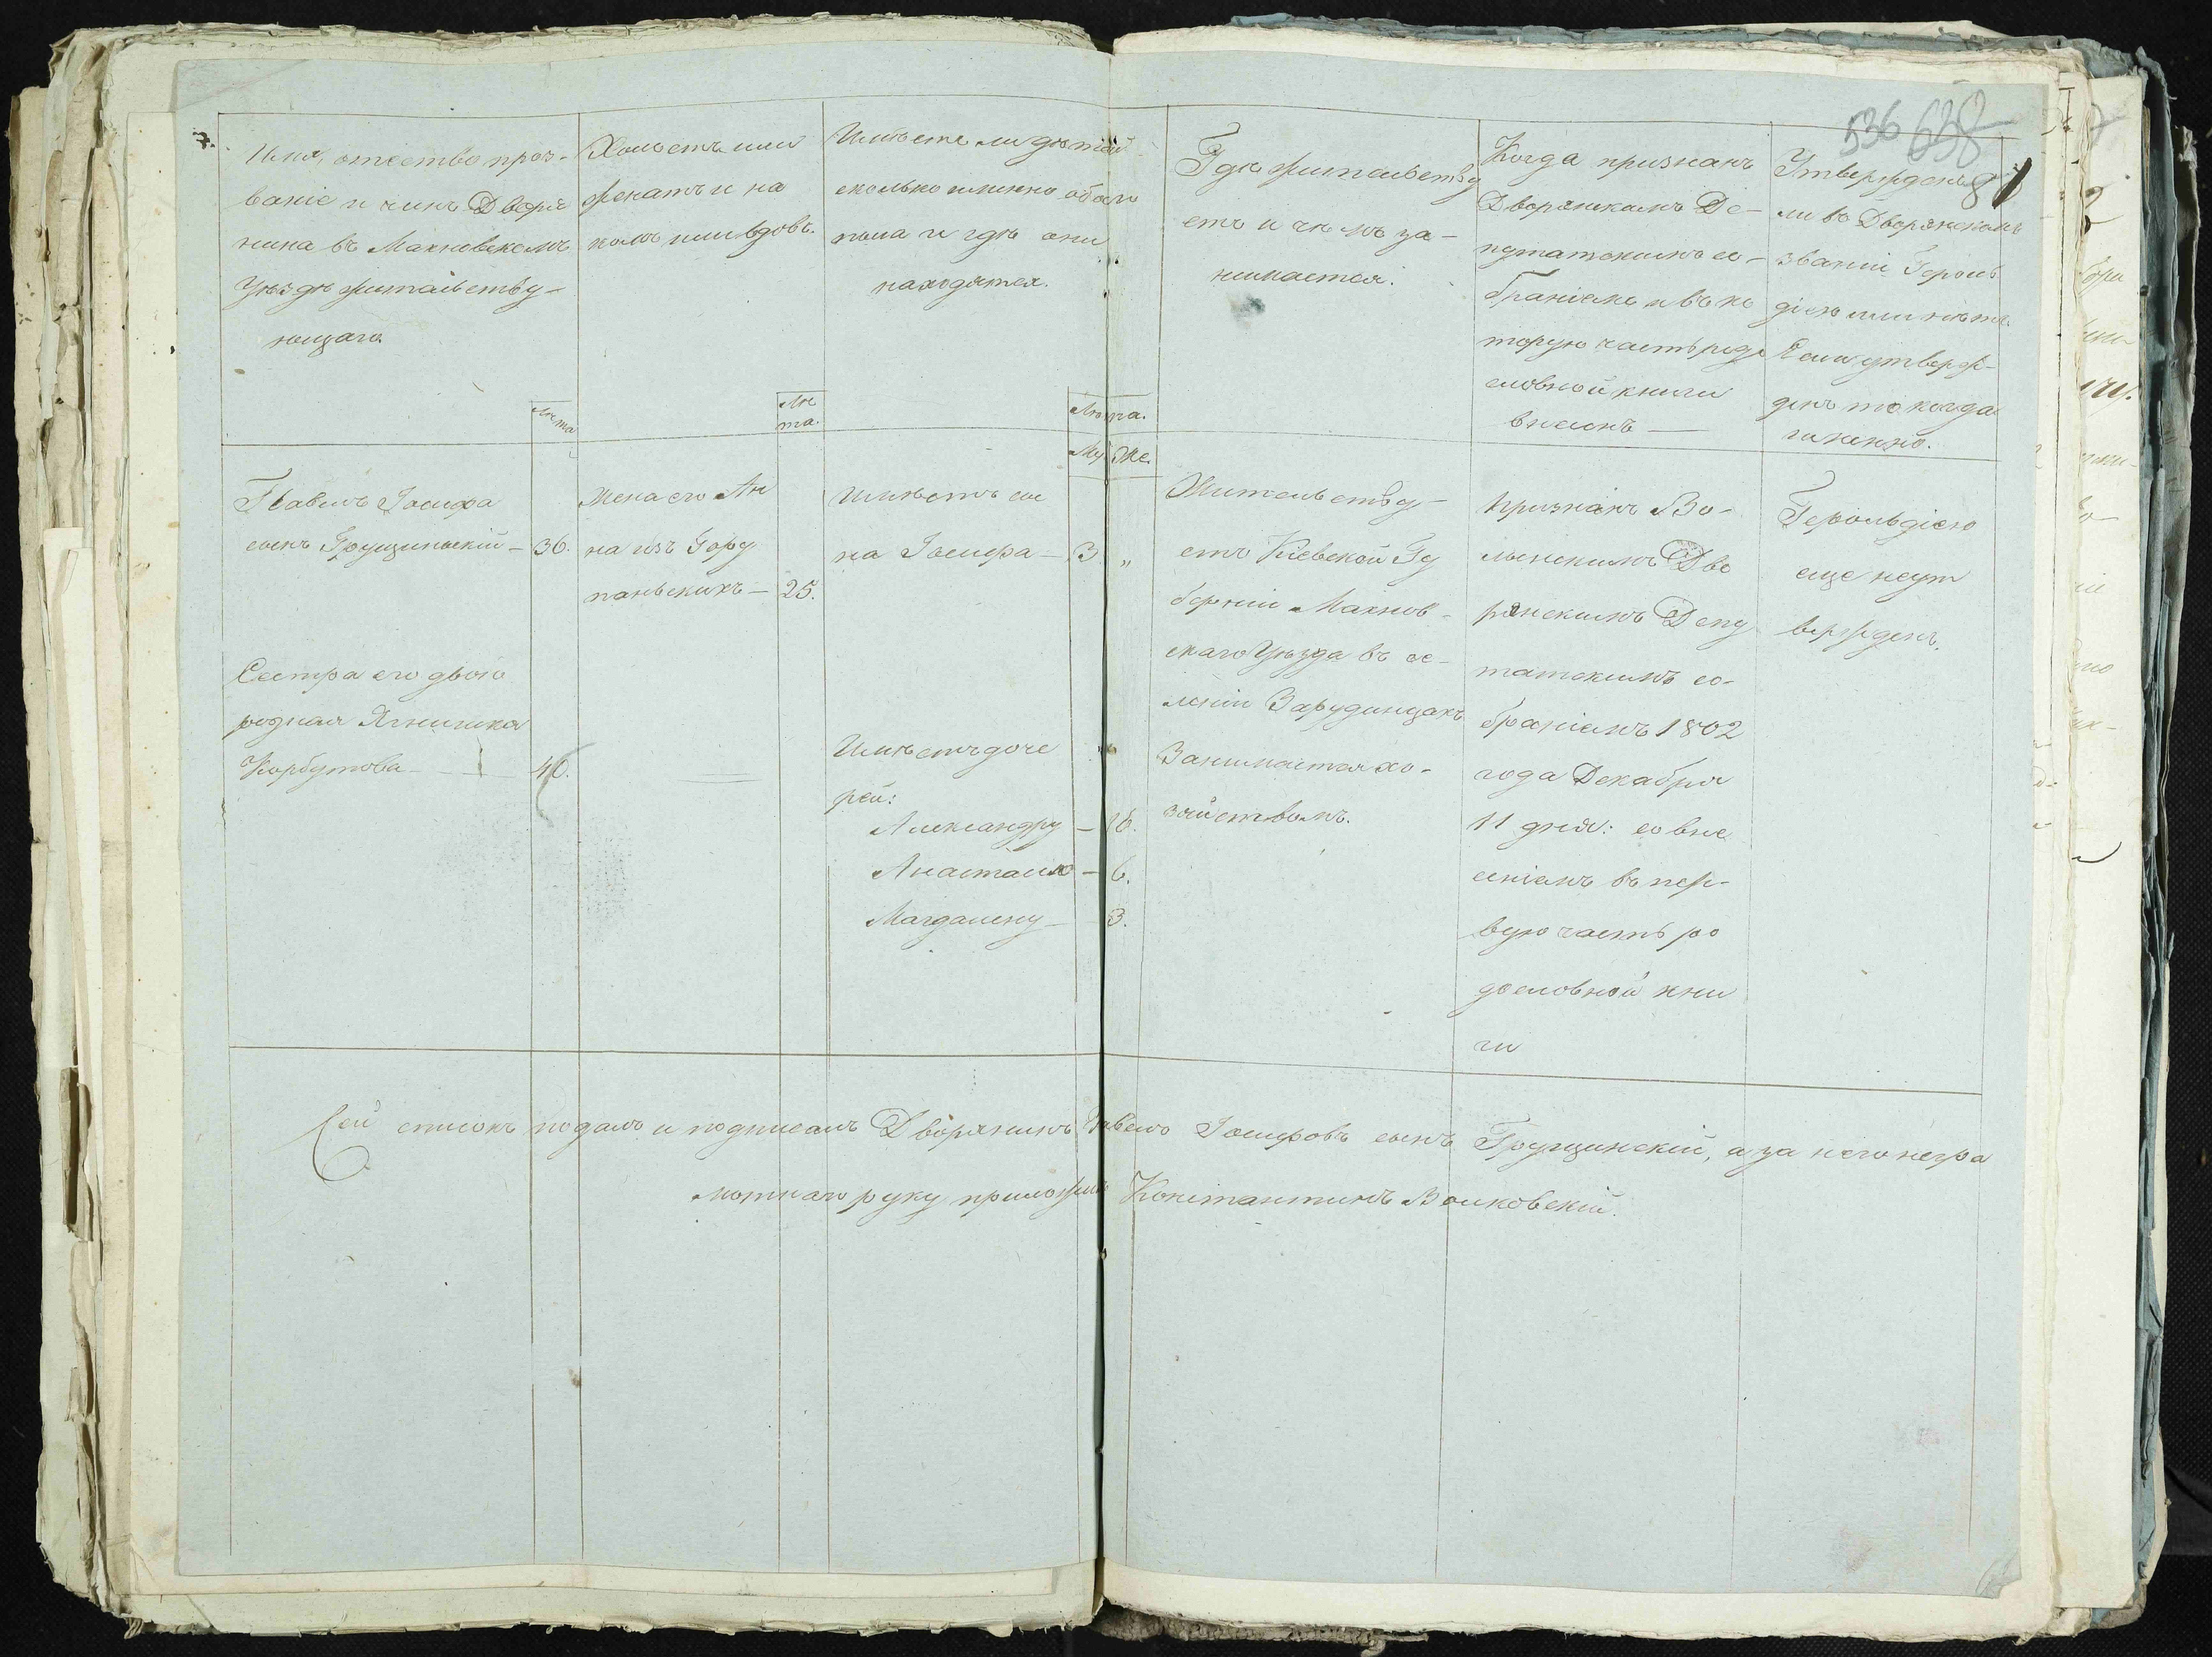 536 638
81
Имя, отчество проз-
ваніе и чинъ Дворя
нина въ Махновскомъ
Уѣздѣ жительству-
ющаго
Лѣта
Холостъ или
женатъ и на
комъ или вдовъ.
Лѣ
та.
Имѣетъ ли дѣтей
сколько именно обоего
пола и гдѣ они
находятся.
Лѣта.
Му. Же.
Гдѣ жительству
етъ и чѣмъ за-
нимается.
Когда признанъ
Дворянскимъ Де-
путатскимъ со-
браніемъ и въ ко
торую часть родо
словной книги
внесенъ —
Утвержденъ
ли въ Дворянскомъ
званіи Героль
діею или нѣтъ.
Если утверж-
денъ то когда
именно.
Павелъ Іосифа
сынъ Грущинскій — 36.
жена его Ан
на изъ
— 25.
Имѣетъ сы
на Іосифа — 3 „
Жительству-
етъ Кіевской Гу
берніи Махнов-
скаго Уѣзда въ се-
леніи Зарудинцахъ
Занимается хо-
зяйствомъ.
признанъ Во-
лынскимъ Дво
рянскимъ Депу
татскимъ со-
браніемъ 1802
года Декабря
11 дня: со вне
сеніемъ въ пер-
вую часть ро
дословной кни
ги
Герольдіею
еще неут
вержденъ.
Сестра его двою
родная Ягнишка
Корбутова — 46.
Имѣетъ доче
рей:
Александру — 16.
Анастасію — 6.
Магдалену — 3.
Сей списокъ подалъ и подписалъ Дворянинъ Павелъ Іосифовъ сынъ Грущинскій, а за него негра
мотнаго руку приложилъ Константинъ